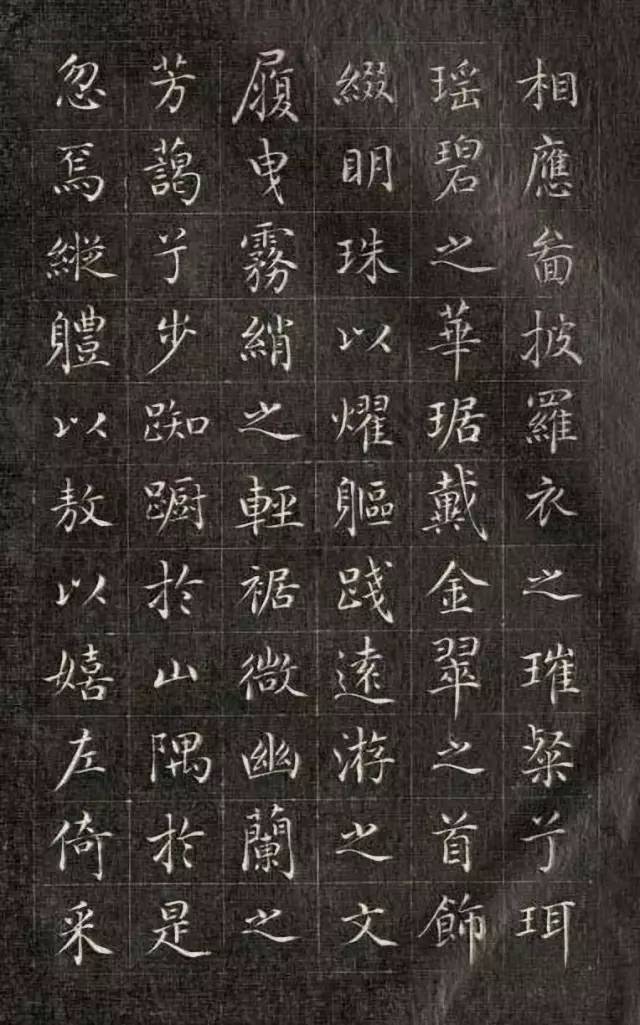 相應啚披羅衣之璀粲兮珥
瑤碧之華琚戴金翠之首飾
綴明珠以燿軀踐遠游之文
履曳霧綃之輕裾微幽蘭之
芳藹兮步踟躕於山隅於是
忽焉縱軆以敖以嬉左倚采